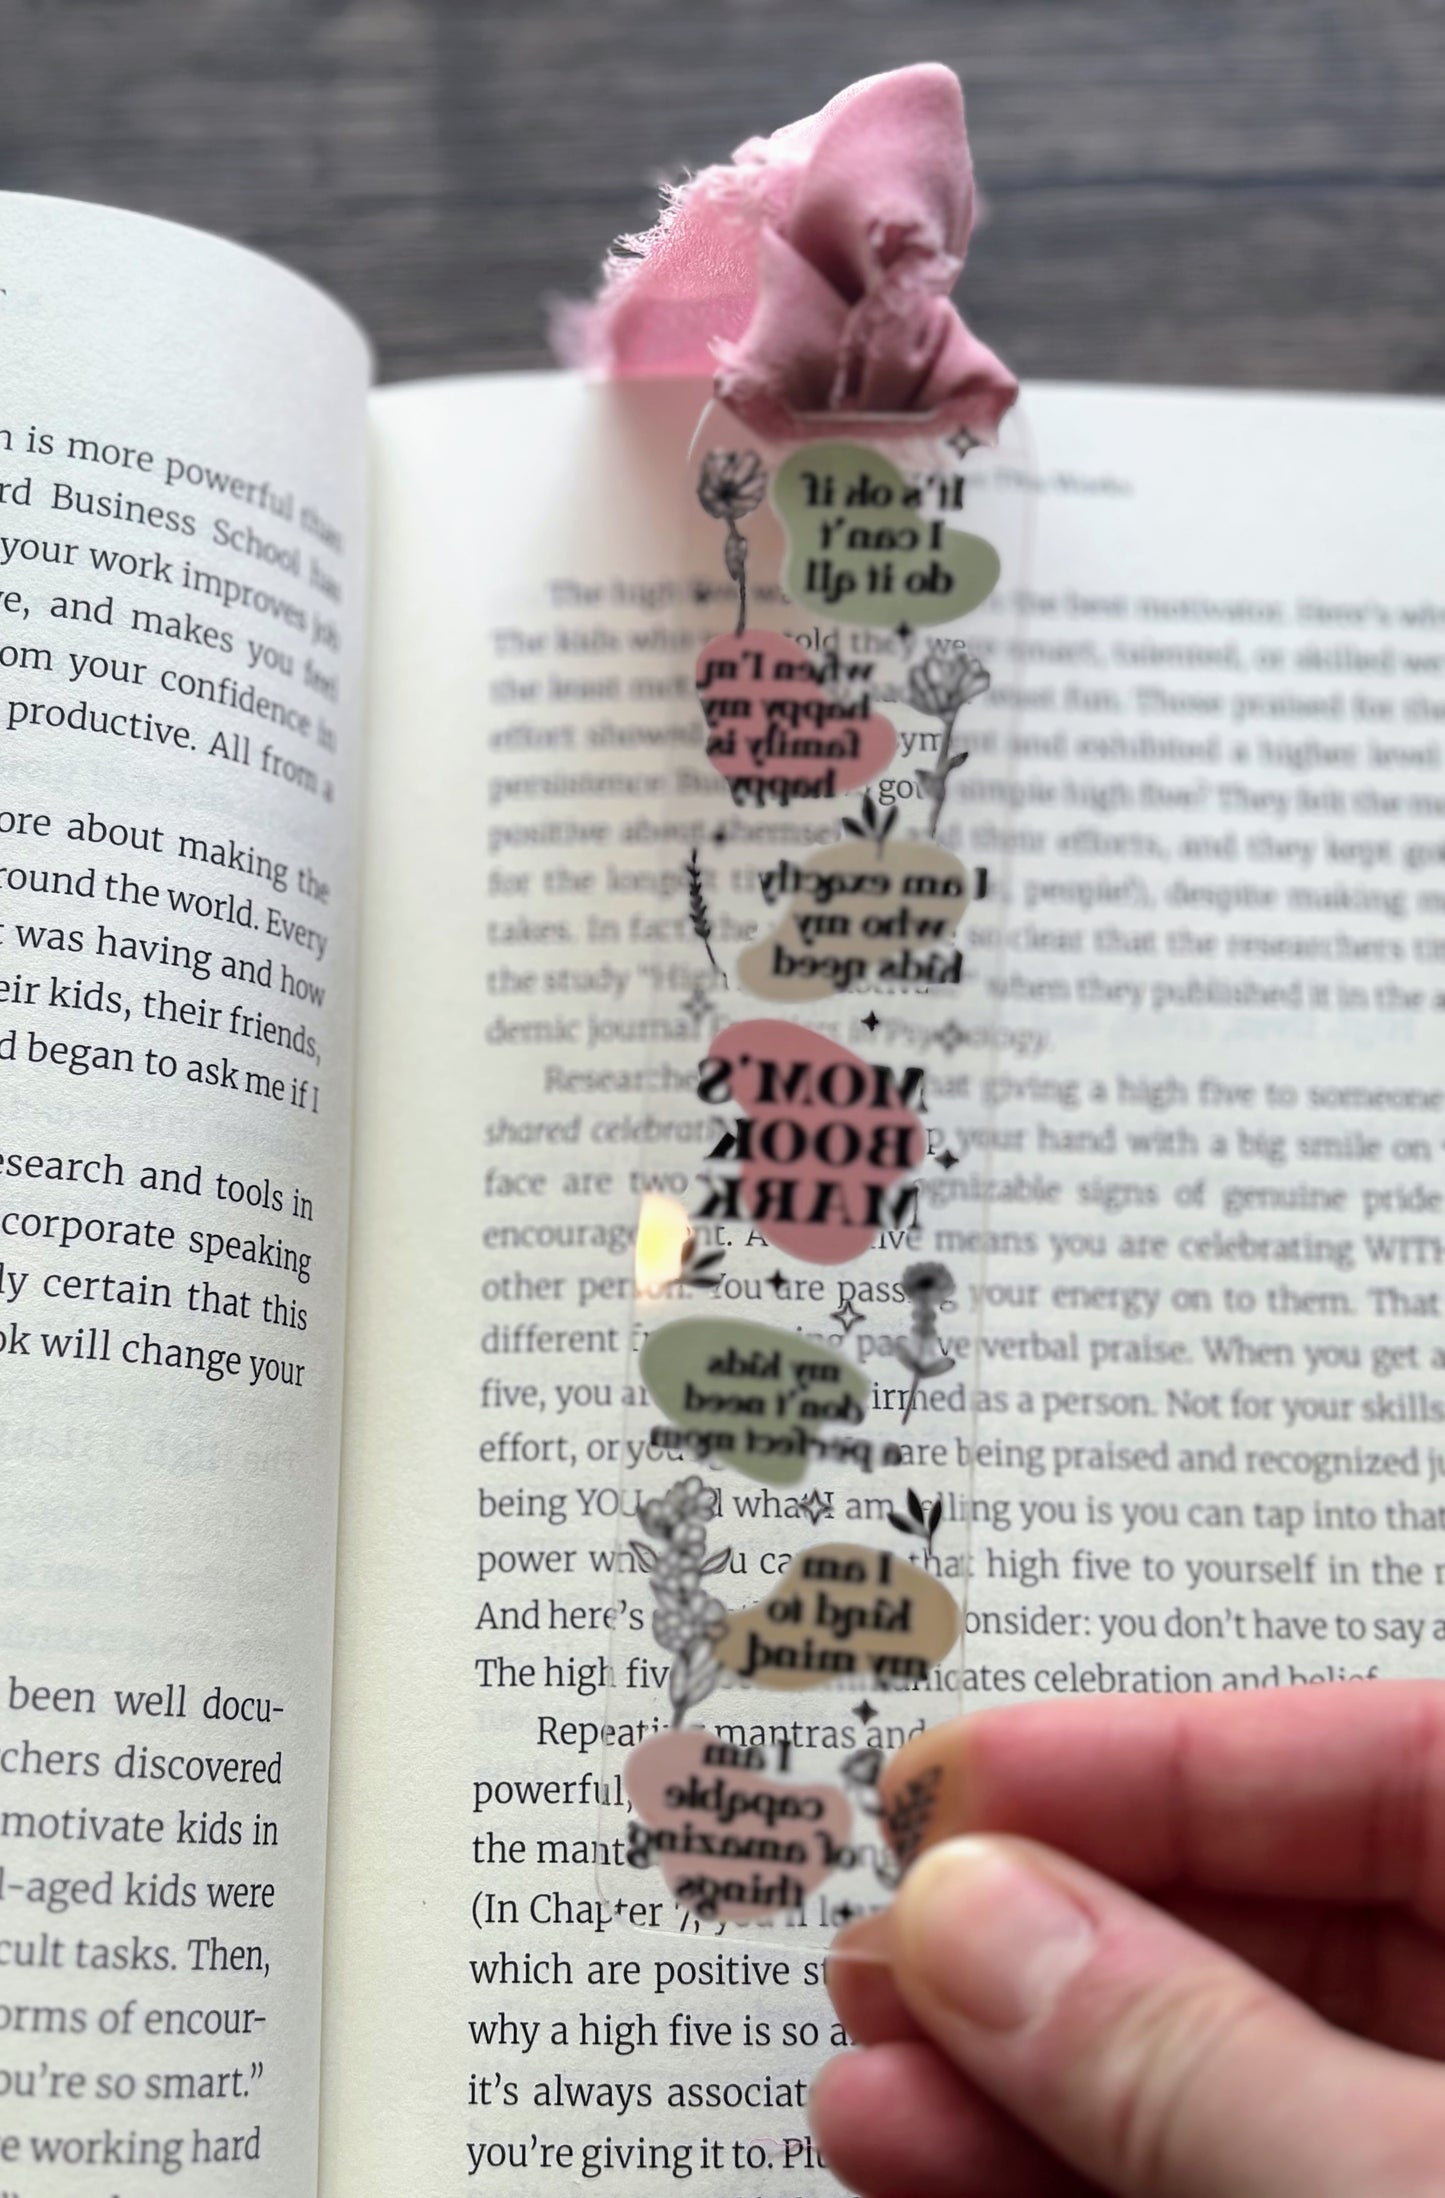 n is more powerful than
rd Business School has
your work improves job
e, and makes you feel
om your confidence in
productive. All from a
ore about making the
round the world. Every
t was having and how
eir kids, their friends,
d began to ask me if I
esearch and tools in
corporate speaking
ly certain that this
ok will change your
been well docu-
chers discovered
motivate kids in
l-aged kids were
cult tasks. Then,
orms of encour-
ou're so smart."
e working hard
It's ok if
I can't
do it all
when I'm
happy my
family is
happy
I am exactly
who my
kids need
MOM'S
BOOK
MARK
my kids
don't need
a perfect mom
I am
kind to
my mind
I am
capable
of amazing
things
The high the best motivator. Here's why
The kids who told they we smart, talented, or skilled we
the least fun. Those praised for the
effort showed and exhibited a higher level
persistence. simple high five? They felt the mo
positive about themsel and their efforts, and they kept go
for the longest people!), despite making m
takes. In fact, the so clear that the researchers tit
the study "High when they published it in the a
demic journal Frontiers in Psychology.
Researche hat giving a high five to someone
shared celebrat your hand with a big smile on
face are two gnizable signs of genuine pride
encouragement. A ive means you are celebrating WITH
other person. You are passing your energy on to them. That
different passive verbal praise. When you get a
five, you ar irmed as a person. Not for your skills
effort, or are being praised and recognized ju
being YOU. what I am telling you is you can tap into that
power ca that high five to yourself in the m
And here's onsider: you don't have to say a
The high fiv nicates celebration and belief
Repeating mantras and
powerful,
the mant
(In Chapter 7, you'll
which are positive st
why a high five is so a
it's always associat
you're giving it to. Plu